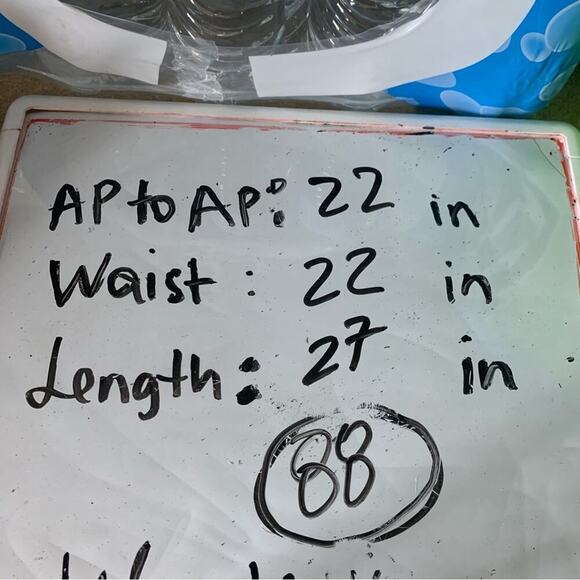 AP to AP: 22 in
Waist : 22 in
Length: 27 in
88